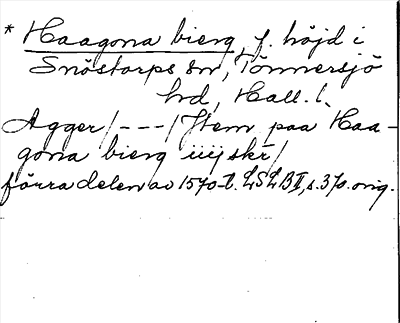 * Haagona bierg, f. höjd i
Snöstorps sn, Tönnersjö
hd, Hall. l.
Agger/---/Item paa Haa-
gona bierg iiij skr/
förra delen av 1570-t. LSLB II, s. 370. orig.